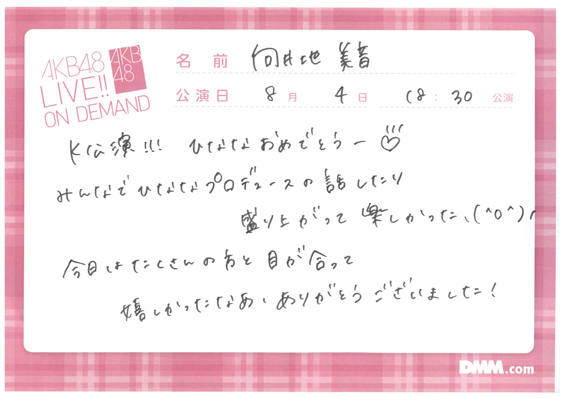 AKB48
LIVE!!
ON DEMAND
AKB
48
名前 向井地 美音
公演日 8月 4日 18:30 公演
K公演!!! ひなな おめでとうー♡
みんなで ひななプロデュースの 話したり
盛り上がって 楽しかった、(^o^)
今日は たくさんの 方と 目が 合って
嬉しかったなあ、ありがとう ございました!
DMM.com